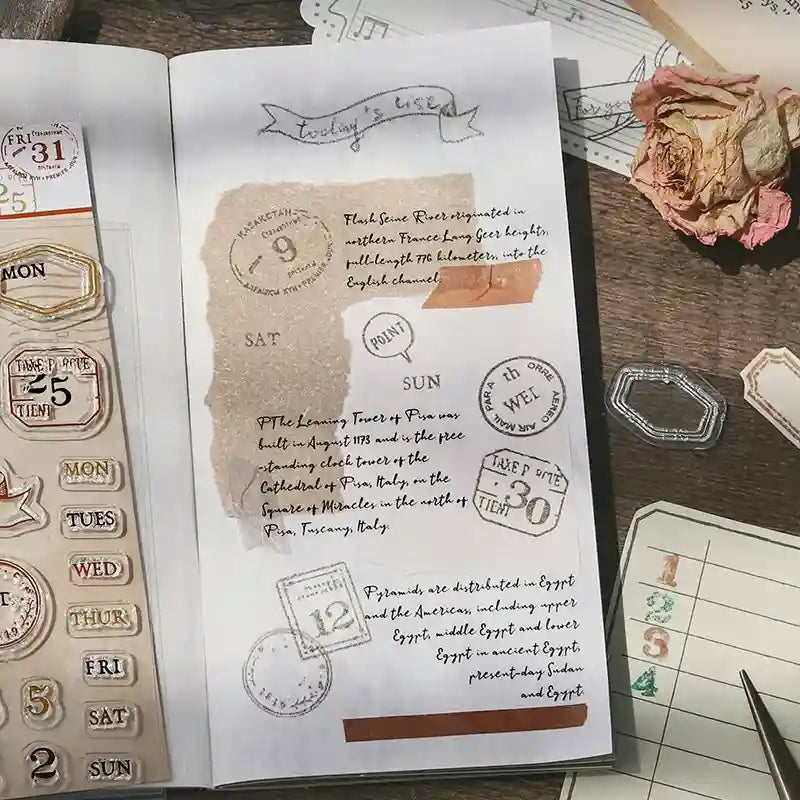 today's use
КАЗАКСТАН
9
Flash Seine River originated in
northern France Lang Geer heights,
full-length 776 kilometers, into the
English channel.
SAT
POINT
SUN
PTHe Leaning Tower of Pisa was
built in August 1173 and is the free
-standing clock tower of the
Cathedral of Pisa, Italy, on the
Square of Miracles in the north of
Pisa, Tuscany, Italy.
th
WEI
PARA ORRE AEREO AIR MAIL
30
TIENT
12
Pyramids are distributed in Egypt
and the Americas, including upper
Egypt, middle Egypt and lower
Egypt in ancient Egypt,
present-day Sudan
and Egypt.
FRI
31
25
MON
25
TIENT
MON
TUES
WED
THUR
FRI
5
SAT
2
SUN
For you
1
2
3
4